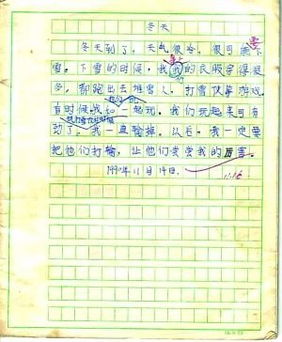 冬天
冬天到了，天气很冷，很可能下
雪。下雪的时候，我们的衣服穿得很
多，都跑出去堆雪人，打雪仗等游戏
有时候我 一起玩。我们玩起来可有
劲了。我一直输掉。以后，我一定要
把他们打输，让他们尝尝我的厉害。
11月14日。
11.16